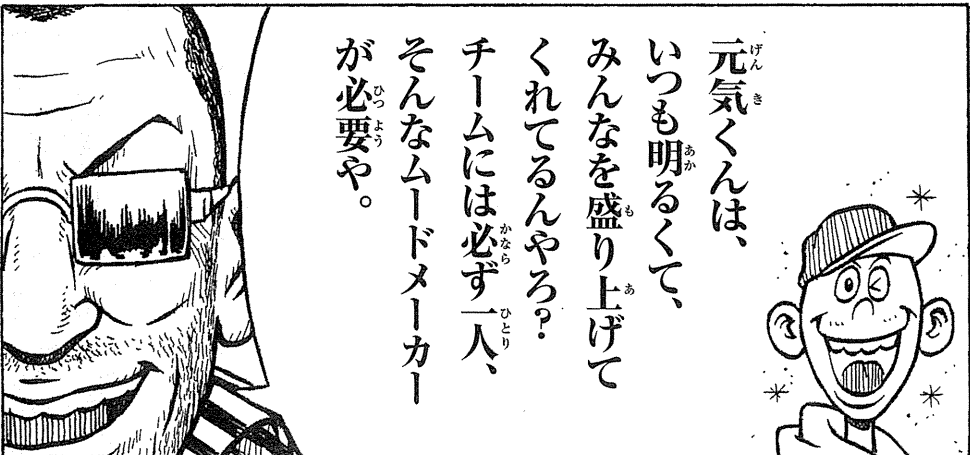 元気くんは、
いつも明るくて、
みんなを盛り上げて
くれてるんやろ?
チームには必ず一人、
そんなムードメーカー
が必要や。